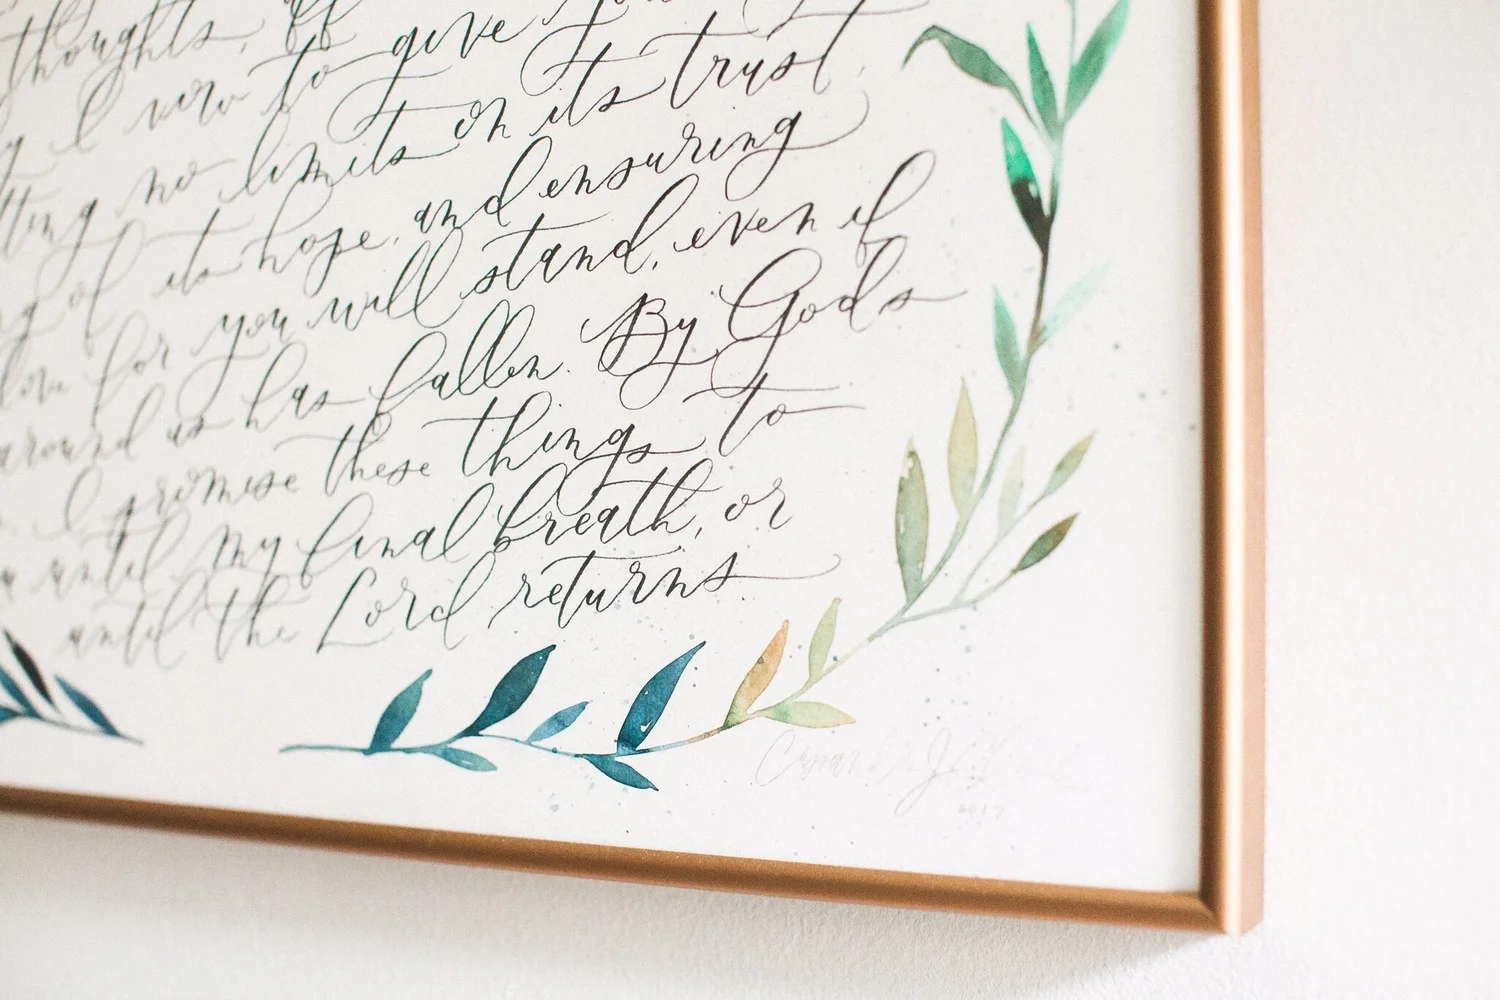 thoughts.
I vow to give
no limits on its trust,
of its hope, and ensuring
love for you will stand, even if
around us has fallen. By God's
I promise these things to
until my final breath, or
until the Lord returns
2017